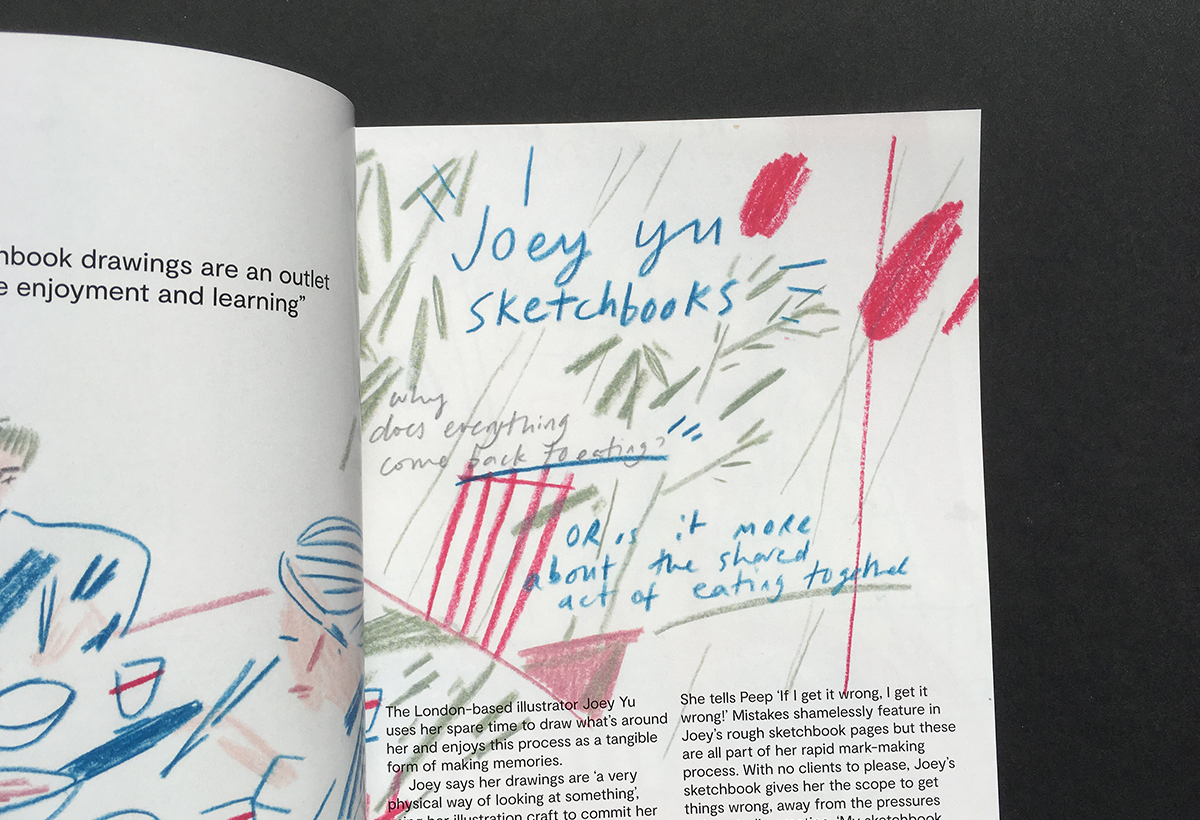 hbook drawings are an outlet
e enjoyment and learning”
Joey yu
sketchbooks
why
does everything
come back to eating?
OR is it more
about the shared
act of eating together
The London-based illustrator Joey Yu
uses her spare time to draw what’s around
her and enjoys this process as a tangible
form of making memories.
Joey says her drawings are ‘a very
physical way of looking at something’,
her illustration craft to commit her
She tells Peep ‘If I get it wrong, I get it
wrong!’ Mistakes shamelessly feature in
Joey’s rough sketchbook pages but these
are all part of her rapid mark-making
process. With no clients to please, Joey’s
sketchbook gives her the scope to get
things wrong, away from the pressures
‘My sketchbook